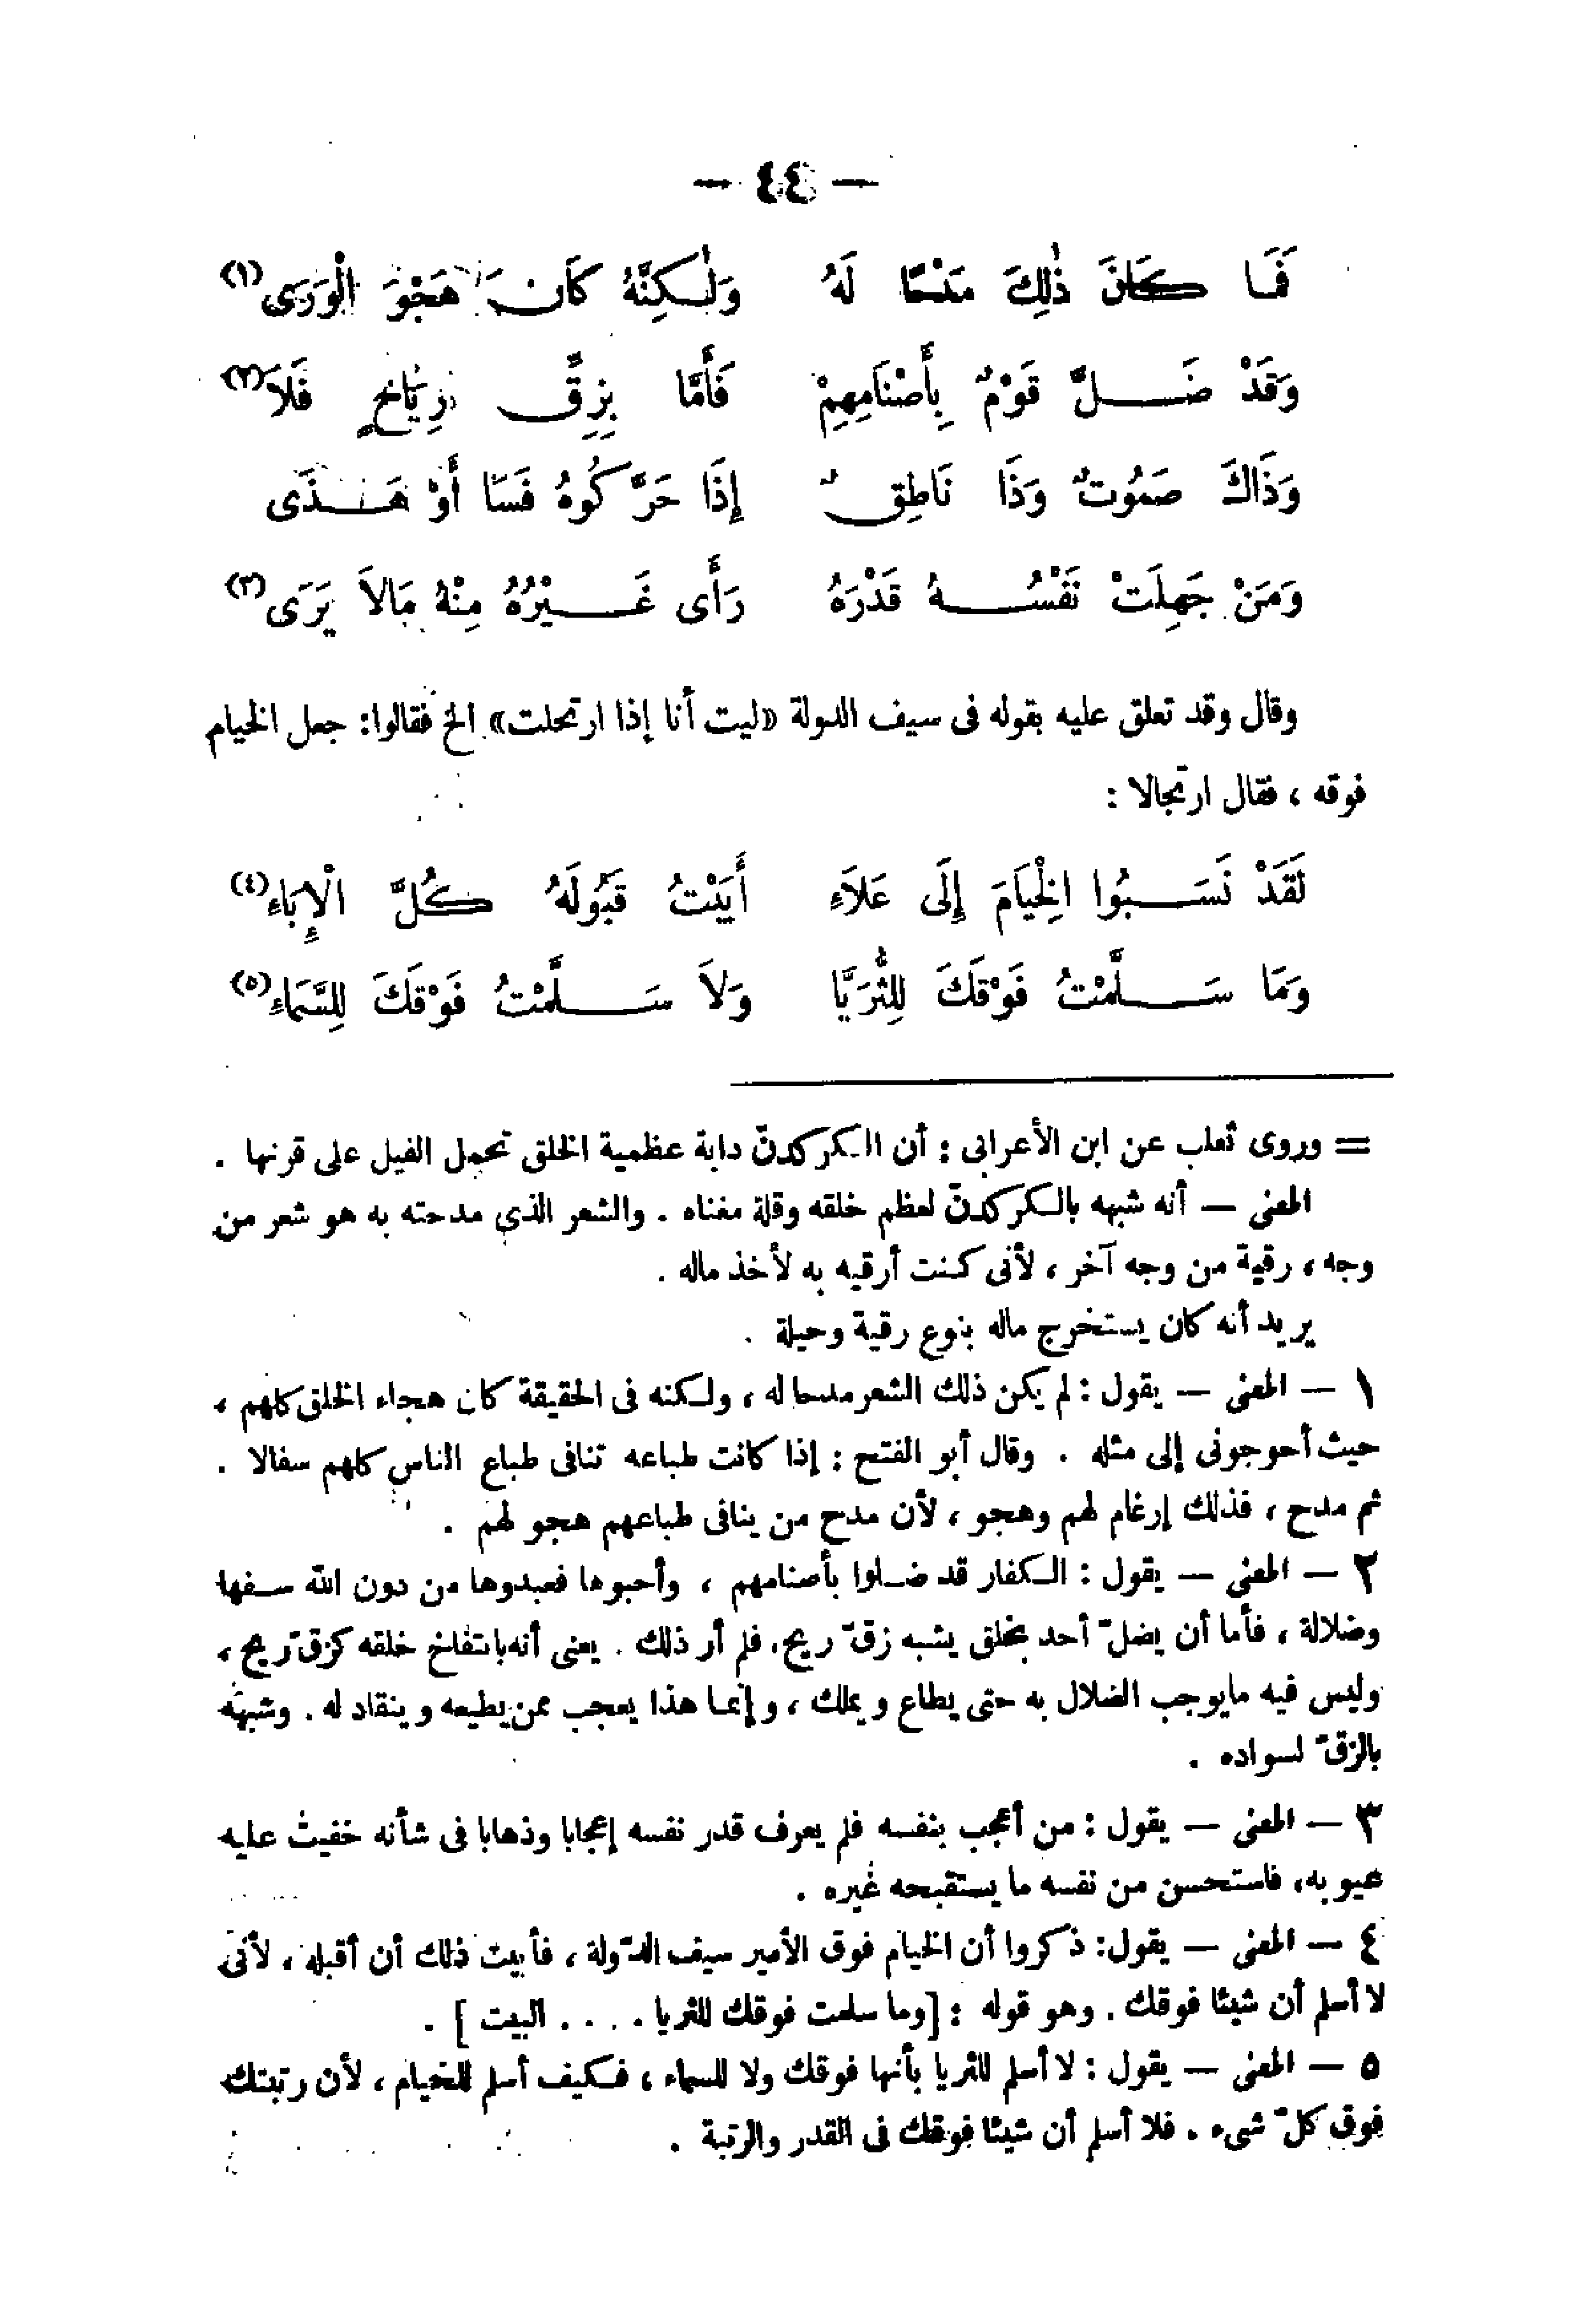 — ٤٤ —
فَمَا كَانَ ذٰلِكَ مَدْحًا لَهُ وَلٰكِنَّهُ كَانَ هَجْوَ الْوَرَى (١)
وَقَدْ ضَلَّ قَوْمٌ بِأَصْنَامِهِمْ فَأَمَّا بِزِقِّ رِيَاحٍ فَلاَ (٢)
وَذَاكَ صَمُوتٌ وَذَا نَاطِقٌ إِذَا حَرَّكُوهُ فَسَا أَوْ هَذَى
وَمَنْ جَهِلَتْ نَفْسُهُ قَدْرَهُ رَأَى غَيْرُهُ مِنْهُ مَالاَ يَرَى (٣)
وقال وقد تعلق عليه بقوله فى سيف الدولة «ليت أنا إذا ارتحلت» الخ فقالوا: جعل الخيام
فوقه ، فقال ارتجالا :
لَقَدْ نَسَبُوا الْخِيَامَ إِلَى عَلاَءِ أَبَيْتُ قَبُولَهُ كُلَّ الْإِبَاءِ (٤)
وَمَا سَلَّمْتُ فَوْقَكَ لِلثُّرَيَّا وَلاَ سَلَّمْتُ فَوْقَكَ لِلسَّمَاءِ (٥)
= وروى ثعلب عن ابن الأعرابى : أن الكركدنّ دابة عظمية الخلق تحمل الفيل على قرنها .
المعنى — أنه شبهه بالكركدنّ لعظم خلقه وقلة مغناه . والشعر الذى مدحته به هو شعر من
وجه ، رقية من وجه آخر ، لأنى كنت أرقيه به لأخذ ماله .
يريد أنه كان يستخرج ماله بنوع رقية وحيلة .
١ — المعنى — يقول : لم يكن ذلك الشعر مدحا له ، ولكنه فى الحقيقة كان هجاء الخلق كلهم ،
حيث أحوجونى إلى مثله . وقال أبو الفتح : إذا كانت طباعه تنافى طباع الناس كلهم سفالا .
ثم مدح ، فذلك إرغام لهم وهجو ، لأن مدح من ينافى طباعهم هجو لهم .
٢ — المعنى — يقول : الكفار قد ضلوا بأصنامهم ، وأحبوها فعبدوها من دون الله سفها
وضلالة ، فأما أن يضلّ أحد بخلق يشبه زقّ ريح، فلم أر ذلك . يعنى أنه بانتفاخ خلقه كزقّ ريح ،
وليس فيه مايوجب الضلال به حتى يطاع ويملك ، وإنما هذا يعجب ممن يطيعه وينقاد له . وشبهه
بالزقّ لسواده .
٣ — المعنى — يقول : من أعجب بنفسه فلم يعرف قدر نفسه إعجابا وذهابا فى شأنه خفيت عليه
عيوبه، فاستحسن من نفسه ما يستقبحه غيره .
٤ — المعنى — يقول: ذكروا أن الخيام فوق الأمير سيف الدّولة ، فأبيت ذلك أن أقبله ، لأنى
لا أسلم أن شيئا فوقك . وهو قوله : [وما سلمت فوقك للثريا . . . . البيت ] .
٥ — المعنى — يقول : لا أسلم للثريا بأنها فوقك ولا للسماء ، فكيف أسلم للخيام ، لأن رتبتك
فوق كلّ شىء . فلا أسلم أن شيئا فوقك فى القدر والرتبة .